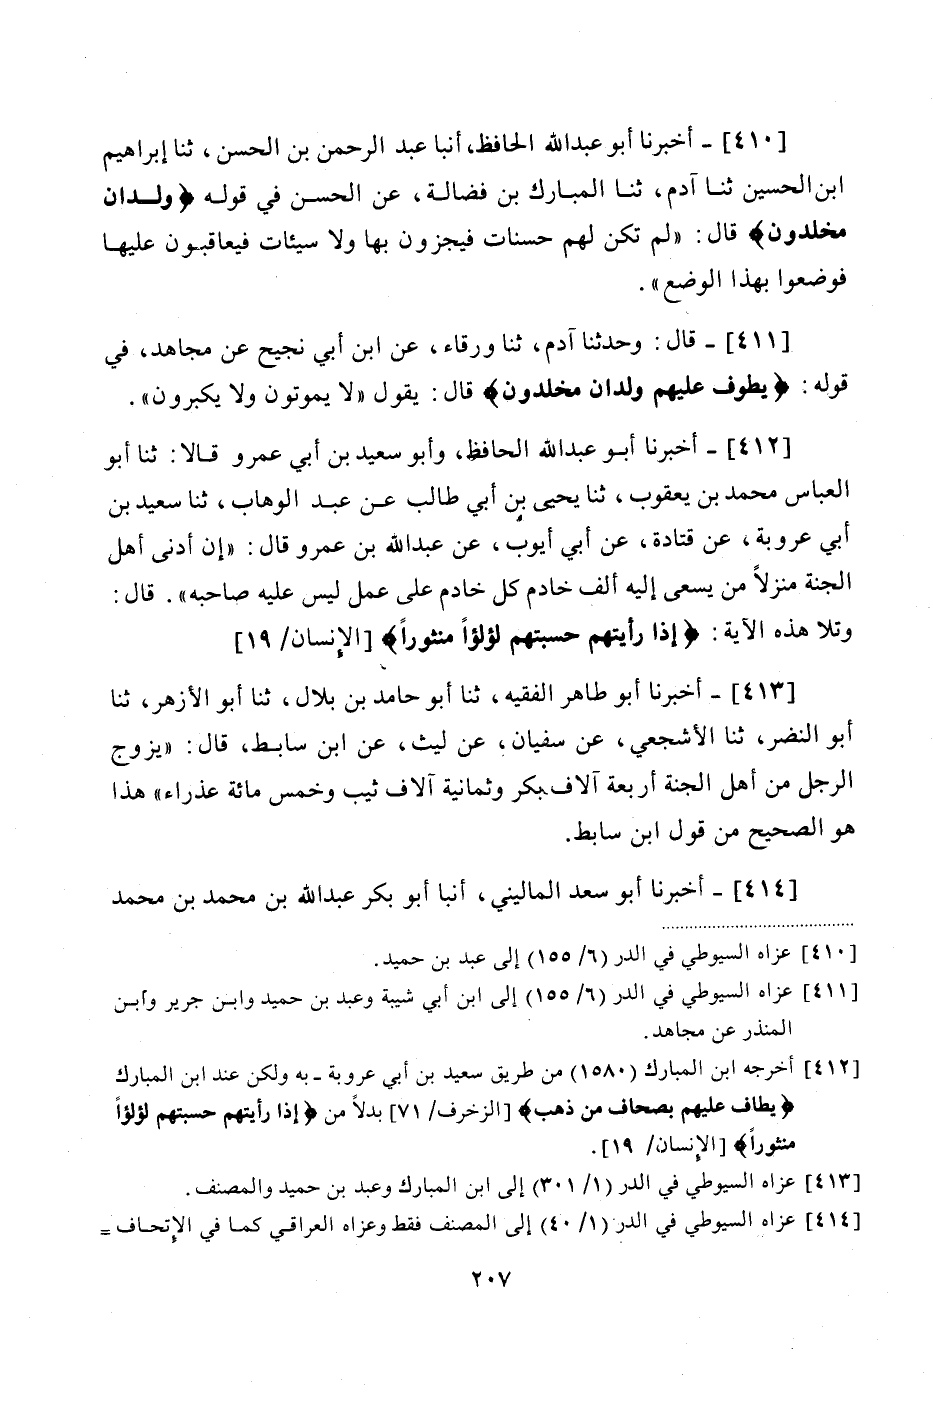 [٤١٠] ـ أخبرنا أبو عبدالله الحافظ، أنبا عبد الرحمن بن الحسن، ثنا إبراهيم
ابن الحسين ثنا آدم، ثنا المبارك بن فضالة، عن الحسن في قوله ﴿ولدان
مخلدون﴾ قال: «لم تكن لهم حسنات فيجزون بها ولا سيئات فيعاقبون عليها
فوضعوا بهذا الوضع».
[٤١١] ـ قال: وحدثنا آدم، ثنا ورقاء، عن ابن أبي نجيح عن مجاهد، في
قوله: ﴿يطوف عليهم ولدان مخلدون﴾ قال: يقول «لا يموتون ولا يكبرون».
[٤١٢] ـ أخبرنا أبو عبدالله الحافظ، وأبو سعيد بن أبي عمرو قالا: ثنا أبو
العباس محمد بن يعقوب، ثنا يحيى بن أبي طالب عن عبد الوهاب، ثنا سعيد بن
أبي عروبة، عن قتادة، عن أبي أيوب، عن عبدالله بن عمرو قال: «إن أدنى أهل
الجنة منزلاً من يسعى إليه ألف خادم كل خادم على عمل ليس عليه صاحبه». قال:
وتلا هذه الآية: ﴿إذا رأيتهم حسبتهم لؤلؤاً منثوراً﴾ [الإنسان/ ١٩]
[٤١٣] ـ أخبرنا أبو طاهر الفقيه، ثنا أبو حامد بن بلال، ثنا أبو الأزهر، ثنا
أبو النضر، ثنا الأشجعي، عن سفيان، عن ليث، عن ابن سابط، قال: «يزوج
الرجل من أهل الجنة أربعة آلاف بكر وثمانية آلاف ثيب وخمس مائة عذراء» هذا
هو الصحيح من قول ابن سابط.
[٤١٤] ـ أخبرنا أبو سعد الماليني، أنبا أبو بكر عبدالله بن محمد بن محمد
[٤١٠] عزاه السيوطي في الدر (٦/ ١٥٥) إلى عبد بن حميد.
[٤١١] عزاه السيوطي في الدر (٦/ ١٥٥) إلى ابن أبي شيبة وعبد بن حميد وابن جرير وابن
المنذر عن مجاهد.
[٤١٢] أخرجه ابن المبارك (١٥٨٠) من طريق سعيد بن أبي عروبة ـ به ولكن عند ابن المبارك
﴿يطاف عليهم بصحاف من ذهب﴾ [الزخرف/ ٧١] بدلاً من ﴿إذا رأيتهم حسبتهم لؤلؤاً
منثوراً﴾ [الإنسان/ ١٩].
[٤١٣] عزاه السيوطي في الدر (١/ ٣٠١) إلى ابن المبارك وعبد بن حميد والمصنف.
[٤١٤] عزاه السيوطي في الدر (١/ ٤٠) إلى المصنف فقط وعزاه العراقي كما في الإتحاف =
٢٠٧